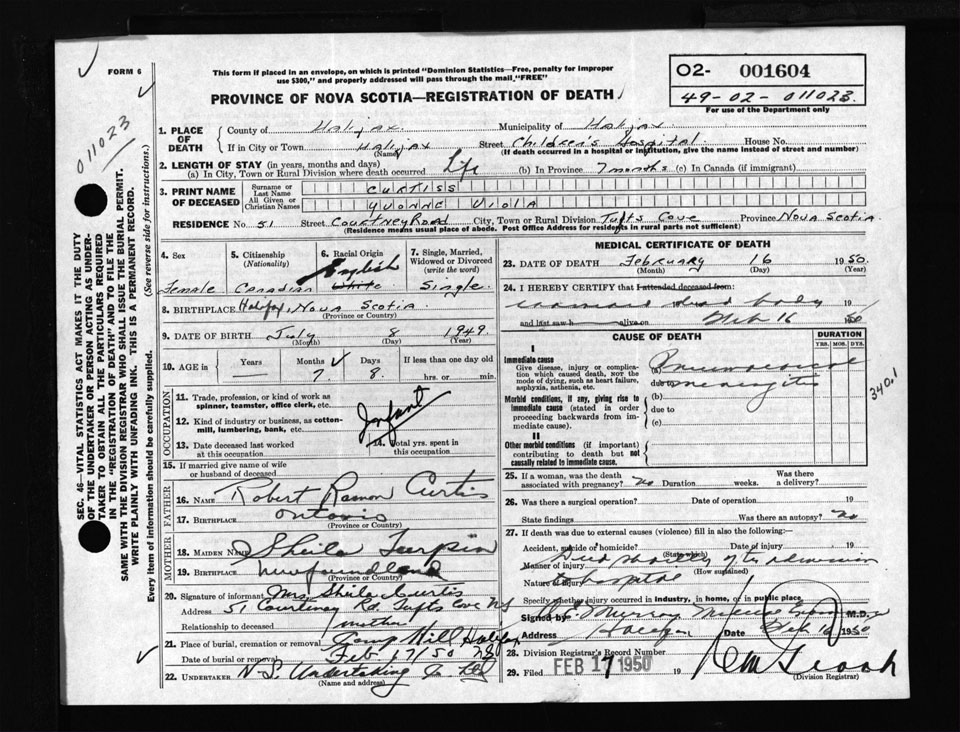 FORM 6
This form if placed in an envelope, on which is printed "Dominion Statistics—Free, penalty for improper
use $300," and properly addressed will pass through the mail, "FREE"
PROVINCE OF NOVA SCOTIA—REGISTRATION OF DEATH
O2- 001604
49-02-011023
For use of the Department only
011023
1. PLACE OF DEATH
County of Halifax Municipality of Halifax
If in City or Town Halifax (Name) Street Children's Hospital House No.
(If death occurred in a hospital or institution, give the name instead of street and number)
2. LENGTH OF STAY (in years, months and days)
(a) In City, Town or Rural Division where death occurred Life (b) In Province 7 months (c) In Canada (if immigrant)
3. PRINT NAME OF DECEASED
Surname or Last Name CURTISS
All Given or Christian Names YVONNE VIOLA
RESIDENCE No. 51 Street Courtney Road City, Town or Rural Division Tufts Cove Province Nova Scotia
(Residence means usual place of abode. Post Office Address for residents in rural parts not sufficient)
4. Sex Female
5. Citizenship (Nationality) Canadian
6. Racial Origin English White
7. Single, Married, Widowed or Divorced (write the word) Single
8. BIRTHPLACE Halifax, Nova Scotia
(Province or Country)
9. DATE OF BIRTH July 8 1949
(Month) (Day) (Year)
10. AGE in Years Months 7 Days 8 If less than one day old
hrs. or min.
OCCUPATION
11. Trade, profession, or kind of work as
spinner, teamster, office clerk, etc.
Infant
12. Kind of industry or business, as cotton-
mill, lumbering, bank, etc.
13. Date deceased last worked
at this occupation
14. Total yrs. spent in
this occupation
15. If married give name of wife
or husband of deceased
FATHER
16. NAME Robert Ramon Curtis
17. BIRTHPLACE Ontario
(Province or Country)
MOTHER
18. MAIDEN NAME Sheila Turpin
19. BIRTHPLACE Newfoundland
(Province or Country)
20. Signature of informant Mrs Sheila Curtis
Address 51 Courtenay Rd. Tufts Cove NS
Relationship to deceased mother
21. Place of burial, cremation or removal Camp Hill Halifax
Date of burial or removal Feb 17/50 NS
22. UNDERTAKER N.S. Undertaking Co Ltd
(Name and address)
MEDICAL CERTIFICATE OF DEATH
23. DATE OF DEATH February 16 1950.
(Month) (Day) (Year)
24. I HEREBY CERTIFY that I attended deceased from:
dead body 19
and last saw h alive on Feb 16 1950
CAUSE OF DEATH
DURATION
YRS. MOS. DYS.
I
Immediate cause
Give disease, injury or complica-
tion which caused death, NOT the
mode of dying, such as heart failure,
asphyxia, asthenia, etc.
(a) Pneumococcal
due to meningitis
Morbid conditions, if any, giving rise to
immediate cause (stated in order
proceeding backwards from im-
mediate cause).
(b)
due to
(c)
340.1
II
Other morbid conditions (if important)
contributing to death but not
causally related to immediate cause.
25. If a woman, was the death
associated with pregnancy? no Duration weeks. Was there
a delivery?
26. Was there a surgical operation? Date of operation 19
State findings Was there an autopsy? no
27. If death was due to external causes (violence) fill in also the following:
Accident, suicide or homicide? Date of injury 19
(State which)
Manner of injury Died shortly after admission
(How sustained)
Nature of injury to hospital
Specify whether injury occurred in industry, in home, or in public place.
Murray Medical M.D.
Address Halifax Date Feb 16 1950
28. Division Registrar's Record Number
29. Filed FEB 17 1950 19
(Division Registrar)
SEC. 46—VITAL STATISTICS ACT MAKES IT THE DUTY
OF THE UNDERTAKER OR PERSON ACTING AS UNDER-
TAKER TO OBTAIN ALL THE PARTICULARS REQUIRED
IN THE "REGISTRATION OF DEATH" AND TO FILE THE
SAME WITH THE DIVISION REGISTRAR WHO SHALL ISSUE THE BURIAL PERMIT.
WRITE PLAINLY WITH UNFADING INK. THIS IS A PERMANENT RECORD.
Every item of information should be carefully supplied. (See reverse side for instructions).